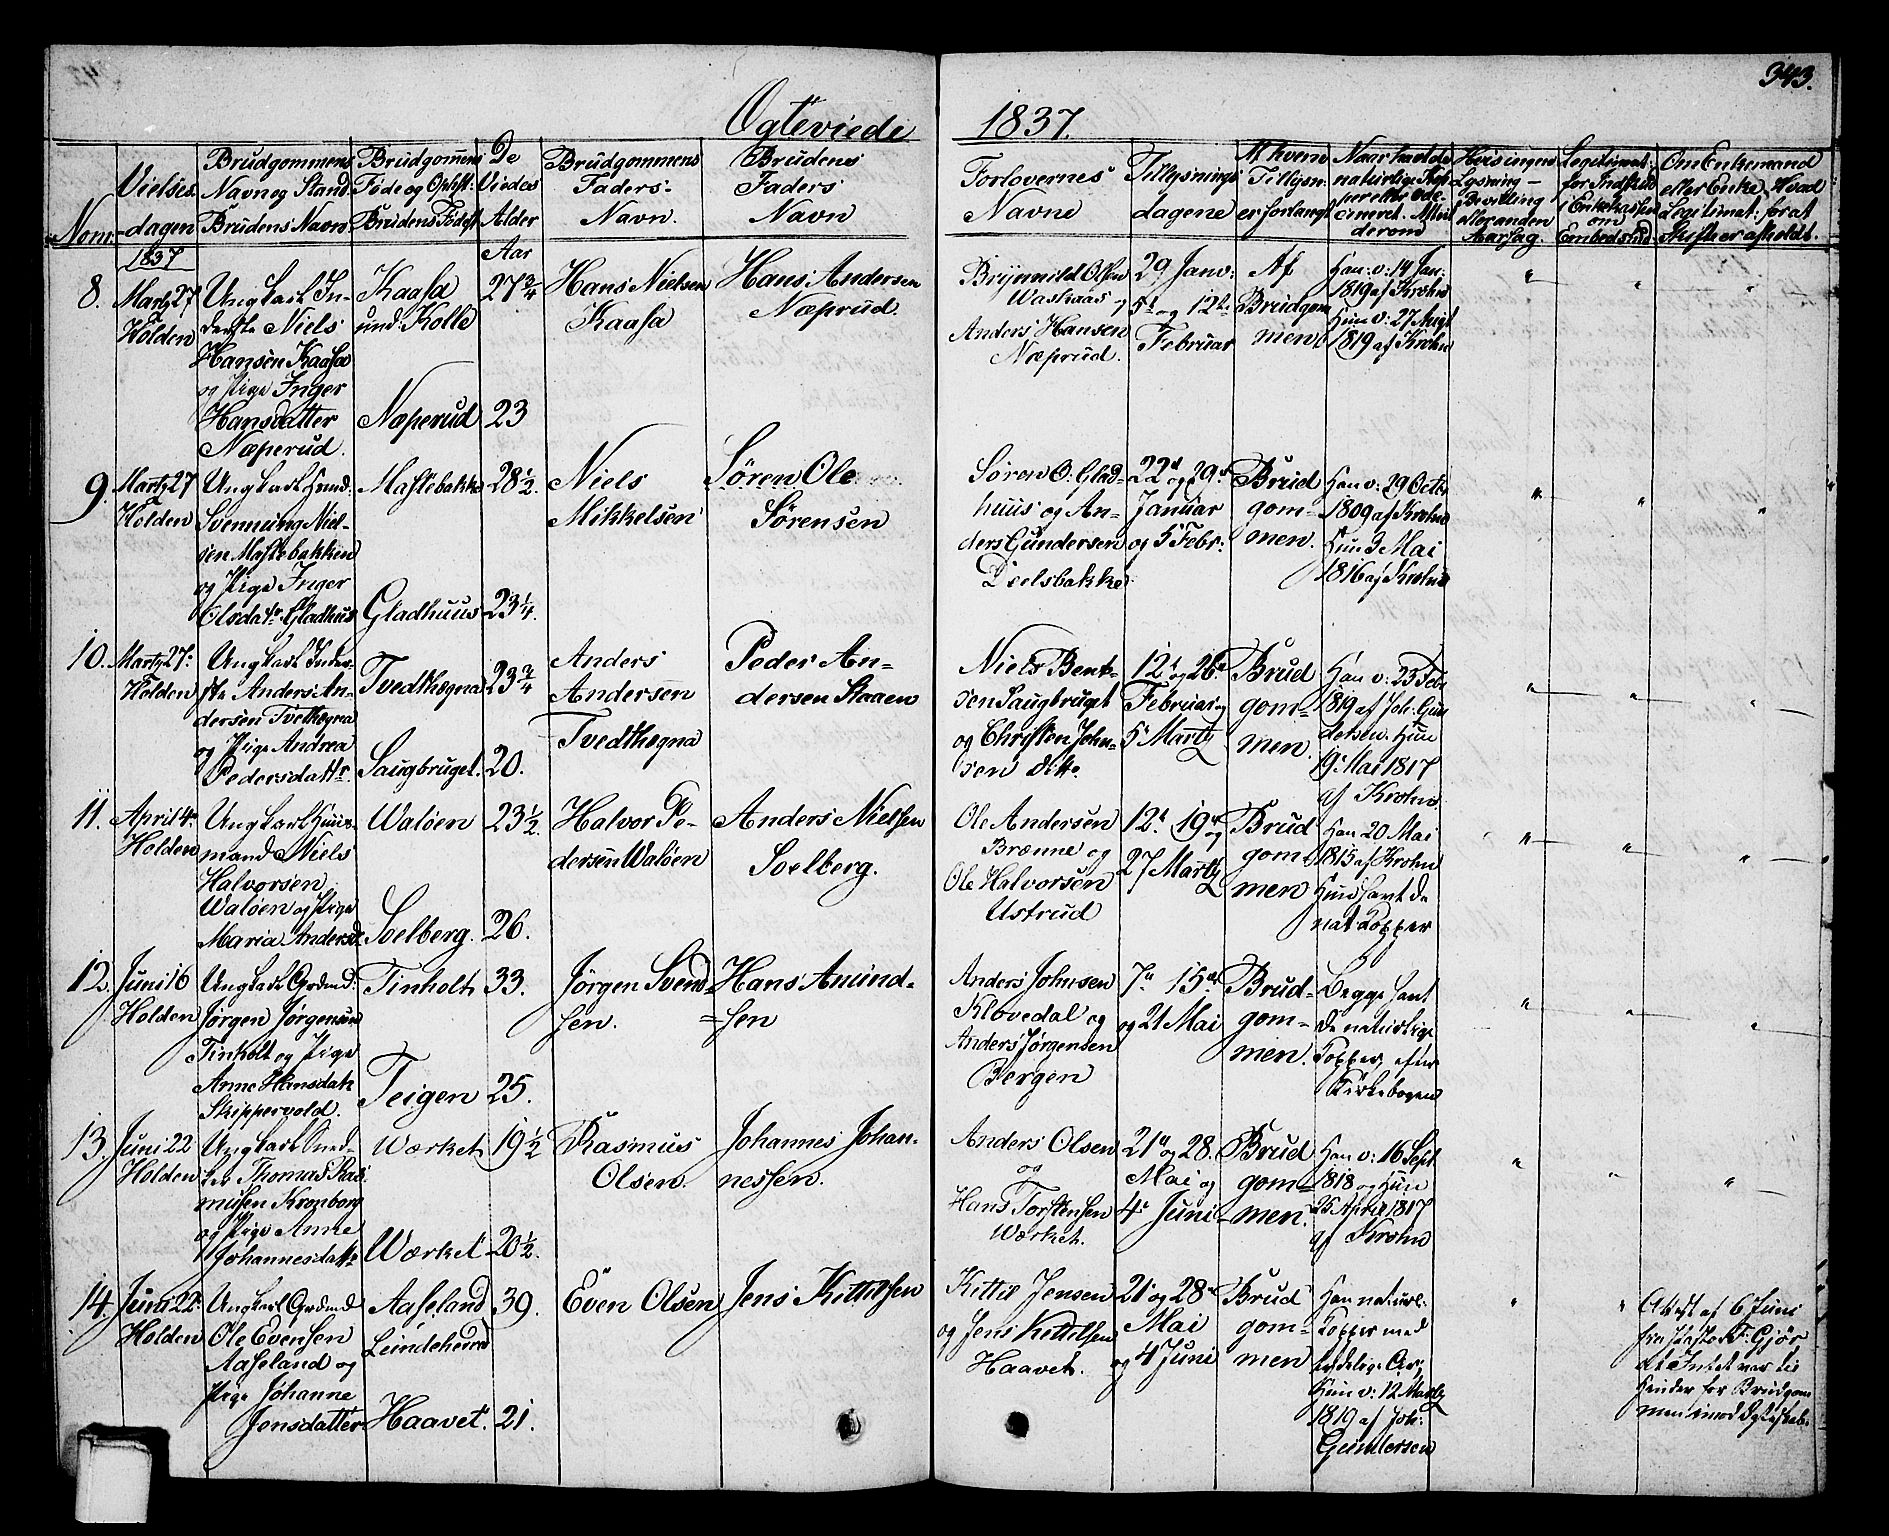 343.
Ogteviede 1837.
Nomr.
Vielses-
dagen
Brudgommens
Navn og Stand
Brudens Navn
Brudgomens
Føde og Ophst:
Brudens Fødest
De
Viedes
Alder
Aar
Brudgommens
Faders
Navn.
Brudens
Faders
Navn
Forlovernes
Navne
Tillysnings
dagene
Af hvem
Tillysn:
er forlangt
Naar havt de
naturlige Kop
per eller vac-
cineret. Attest
derom
Hvis ingen
Lysning -
Bevilling
eller anden
Aarsag.
Legitimat:
for Indskud
i Enkekassen
om
Embedsmd
Om Enkemand
eller Enke, Hvad
Legitimat: for at
Skifte er afholdt.
1837
8.
Martz 27
Holden
Ungkarl In-
derste Niels
Hansen Kaasa
og Pige Inger
Hansdatter
Næperud.
Kaasa
und: Kolle
Næperud
27 3/4
23
Hans Nielsen
Kaasa
Hans Andersen
Næprud.
Brynnild Olsen
Waskaas og
Anders Hansen
Næprud.
29 Janv:
5t og 12t
Februar
Af
Brudgom
men
Han: v: 14 Jan:
1819 af Krohn
Hun v: 27 Augt
1819 af Krohn
9.
Martz 27
Holden
Ungkarl Huud.
Svennung Niel-
sen Maslebakken
og Pige Inger
Olsdatr. Gladhuus
Maslebakke
Gladhuus
28 1/2.
23 1/4.
Niels
Mikkelsen
Søren Ole
Sørensen
Søren O: Glad-
huus og An-
ders Gundersen
Deelsbakke
22d og 29d
Januar
og 5 Febr:
Brud
gom-
men.
Han v: 29 Octbr
1809 af Krohn
Hun 3 Mai
1816 af Krohn
10.
Martz 27.
Holden
Ungkarl Inder-
ste Anders An-
dersen Tvethægna
og Pige Andrea
Pedersdattr
Tvedthægna
Saugbruget.
23 3/4
20.
Anders
Andersen
Tvedthægna
Peder An-
dersen Staaen
Niels Bent-
sen Saugbruget
og Christen John-
sen ditto.
12t og 26d
Februar og
5 Martz
Brud
gom-
men.
Han v: 23 Febr
1819 af Joh: Gun
dersen. Hun
19 Mai 1817
af Krohn
11.
April 4.
Holden
Ungkarl Huus-
mand Niels
Halvorsen
Waløen og Pige
Maria Andersd
Waløen
Solberg.
23 1/2.
26.
Halvor Pe-
dersen Waløen
Anders Nielsen
Soelberg.
Ole Andersen
Brænne og
Ole Halvorsen
Ustrud
12t 19d og
27 Martz
Brud
gom
men
Han 20 Mai
1815 af Krohn
Hun havt de
nat Kopper
12.
Juni 16
Holden
Ungkarl Grdmd:
Jørgen Jørgensen
Tinholt og Pige
Anne Hansdatr
Skippervold.
Tinholt
Teigen
33.
25.
Jørgen Svend-
sen.
Hans Amund-
sen
Anders Johnsen
Klovedal og
Anders Jørgensen
Bergen
7d 15de
og 21 Mai
Brud-
gom-
men.
Begge havt
de naturlige
Kopper, efter
Kirkebogen
13.
Juni 22
Holden
Ungkarl Smed-
Thomas Ras
musen Kronborg
og Pige Anne
Johannesdattr
Wærket
Wærket
19 1/2
20 1/2.
Rasmus
Olsen.
Johannes Johan-
nessen.
Anders Olsen
og
Hans Torstensen
Wærket.
21d og 28.
Mai og
4 Juni
Brud
gom-
men.
Han v: 16 Sept
1818 og Hun
25 April 1817
af Krohn
14.
Juni 22.
Holden
Ungkarl Grdmd
Ole Evensen
Aaseland og
Pige Johanne
Jensdatter
Aaseland
Leindeherred
Haavet.
39.
21.
Even Olsen
Jens Kittilsen
Kittil Jensen
og Jens Kettilsen
Haavet.
21 og 28d
Mai
og 4 Juni
Brud
gom-
men
Han naturl:
Kopper med
tydelige Ar,
Hun v: 12 Martz
1819 af Joh:
Gundersen
Attest af 6 Juni
fra Pastor F: Gjør
at Intet var til
Hinder for Brudgom
men imod Egteskab.